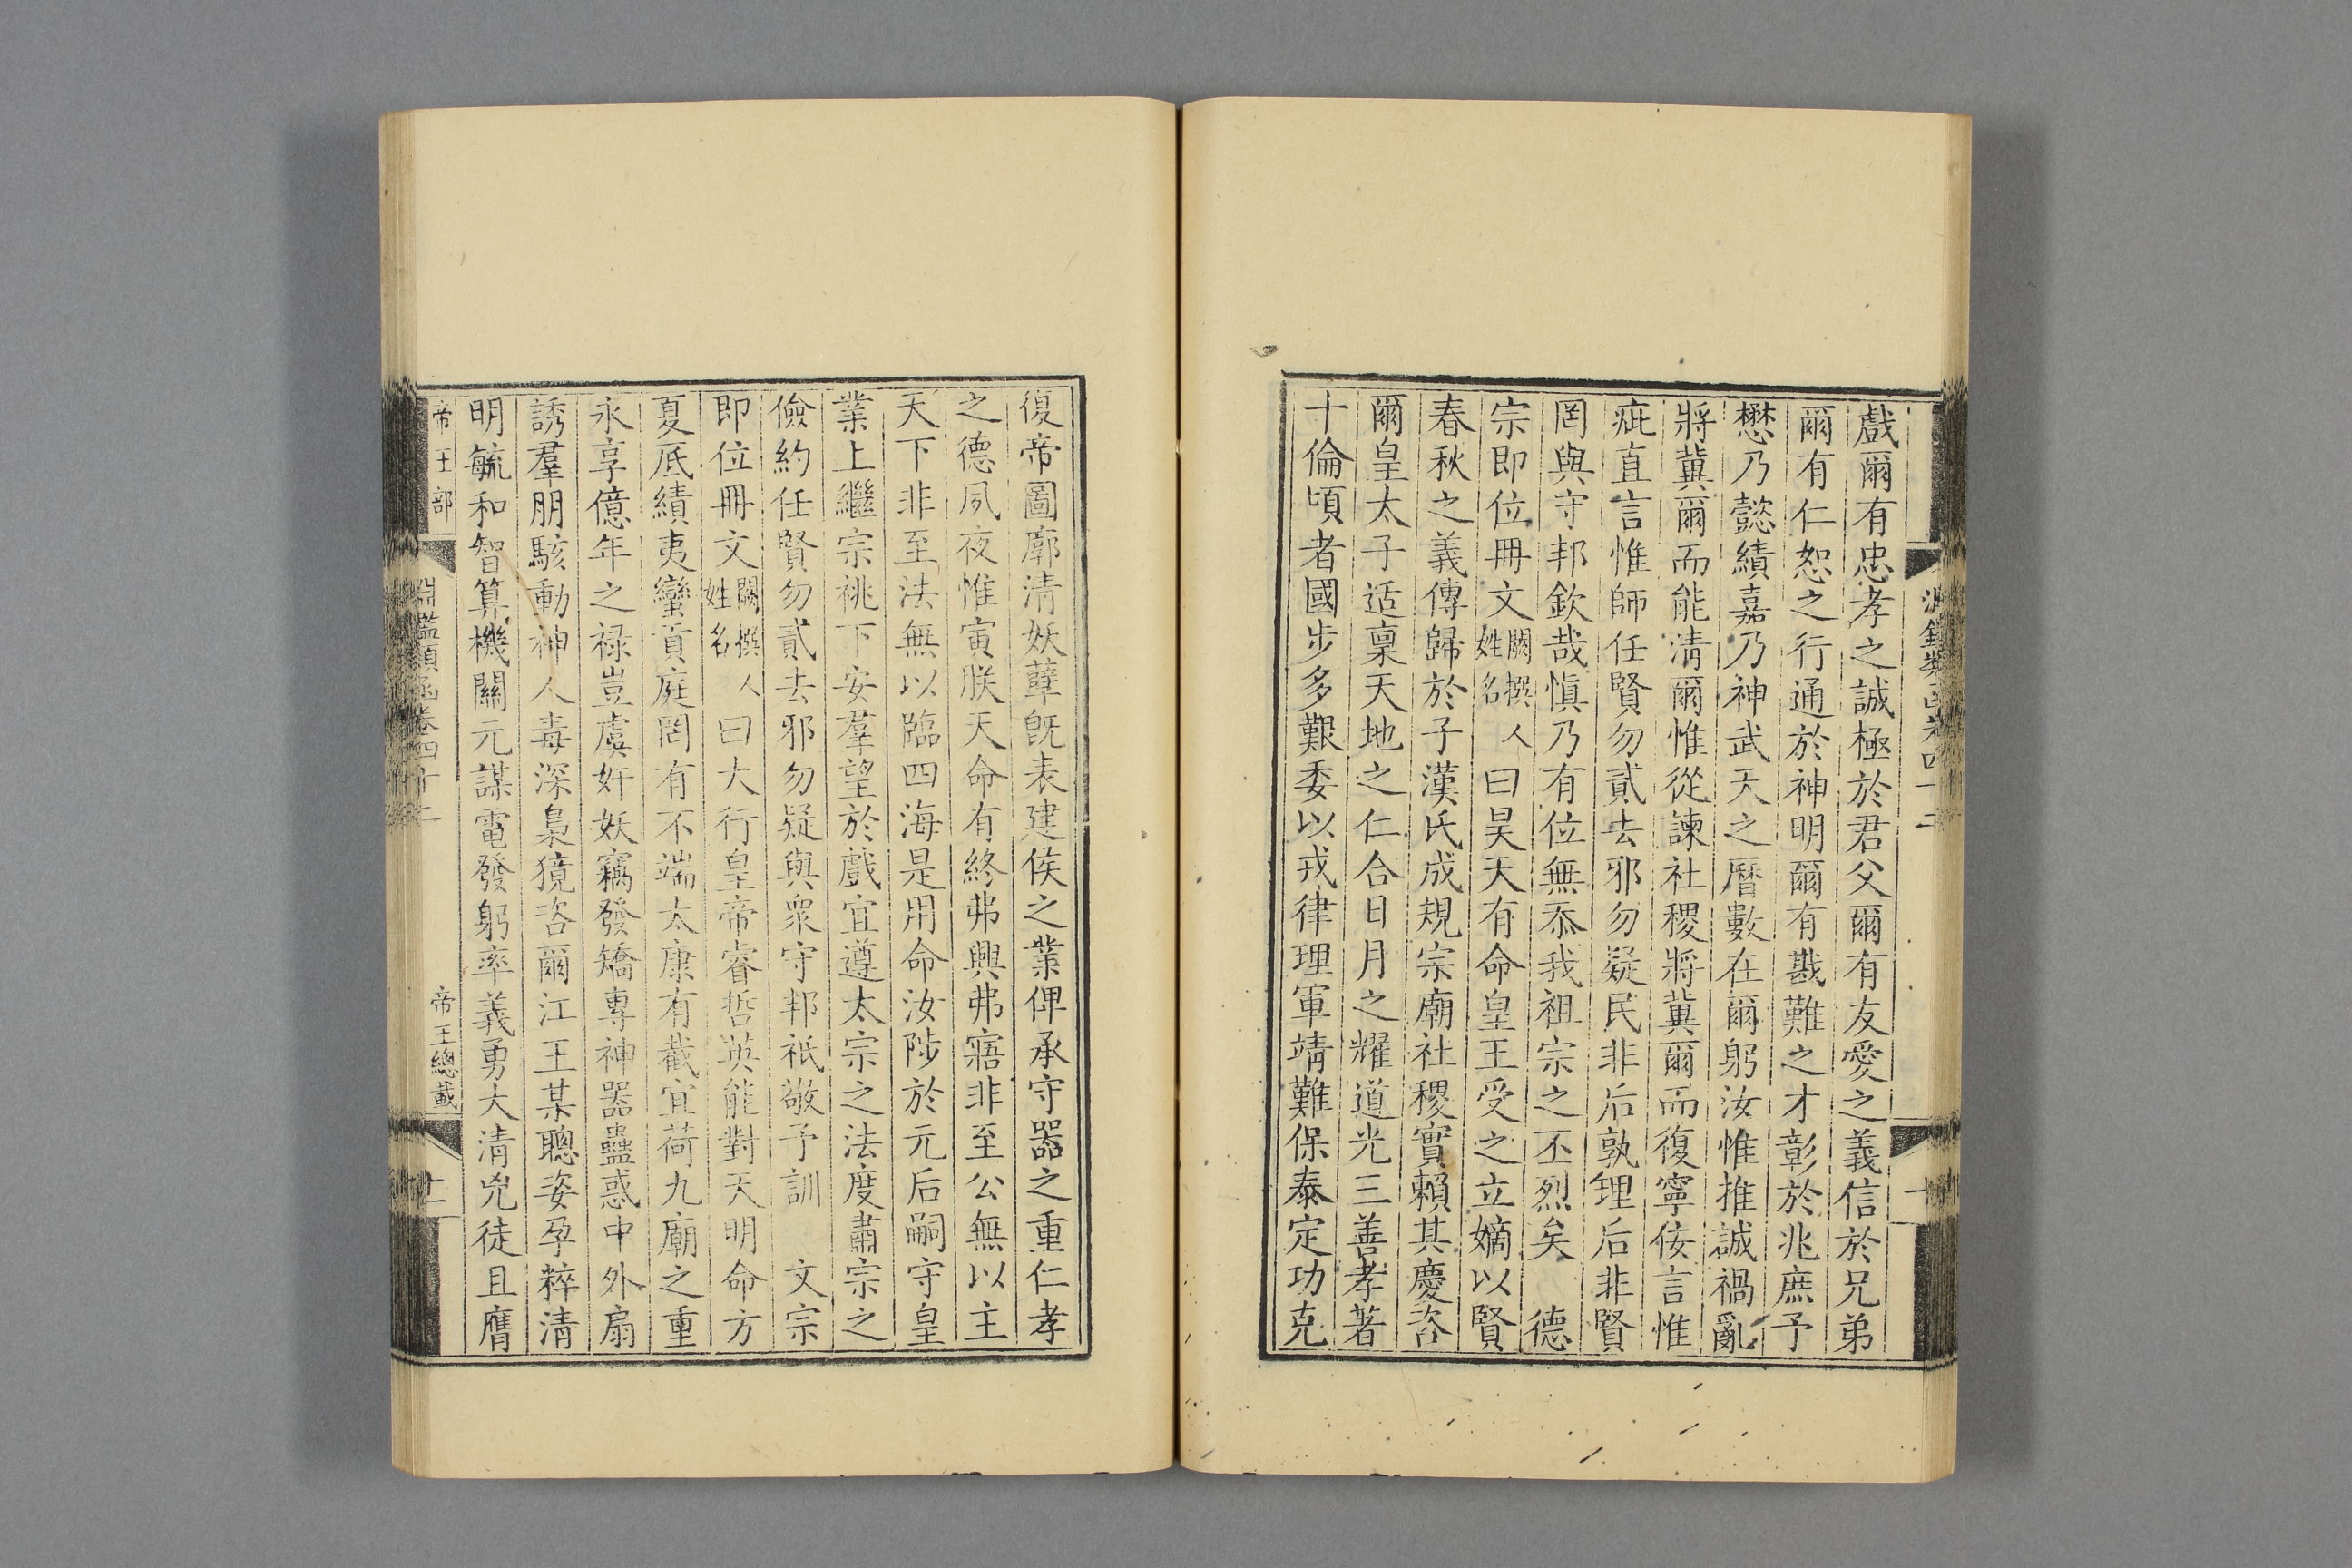 戲爾有忠孝之誠極於君父爾有友愛之義信於兄弟
爾有仁恕之行通於神明爾有戡難之才彰於兆庶予
懋乃懿績嘉乃神武天之曆數在爾躬汝惟推誠禍亂
將冀爾而能淸爾惟從諫社稷將冀爾而復寧佞言惟
疵直言惟師任賢勿貳去邪勿疑民非后孰理后非賢
罔與守邦欽哉愼乃有位無忝我祖宗之丕烈矣 德
宗即位冊文闕撰人姓名曰昊天有命皇王受之立嫡以賢
春秋之義傳歸於子漢氏成規宗廟社稷實賴其慶咨
爾皇太子适稟天地之仁合日月之耀道光三善孝著
十倫頃者國步多艱委以戎律理軍靖難保泰定功克
復帝圖廓淸妖孽旣表建侯之業俾承守器之重仁孝
之德夙夜惟寅朕天命有終弗興弗寤非至公無以主
天下非至法無以臨四海是用命汝陟於元后嗣守皇
業上繼宗祧下安羣望於戲宜遵太宗之法度肅宗之
儉約任賢勿貳去邪勿疑與衆守邦祇敬予訓 文宗
即位冊文闕撰人姓名曰大行皇帝睿哲英能對天明命方
夏厎績夷蠻貢庭罔有不端太康有截宜荷九廟之重
永享億年之祿豈虞奸妖竊發矯專神器蠱惑中外扇
誘羣朋駭動神人毒深梟獍咨爾江王某聰姿孕粹淸
明毓和智算機關元謀電發躬率義勇大清兇徒且膺
帝王部 淵鑑類函卷四十二 帝王總載 十二